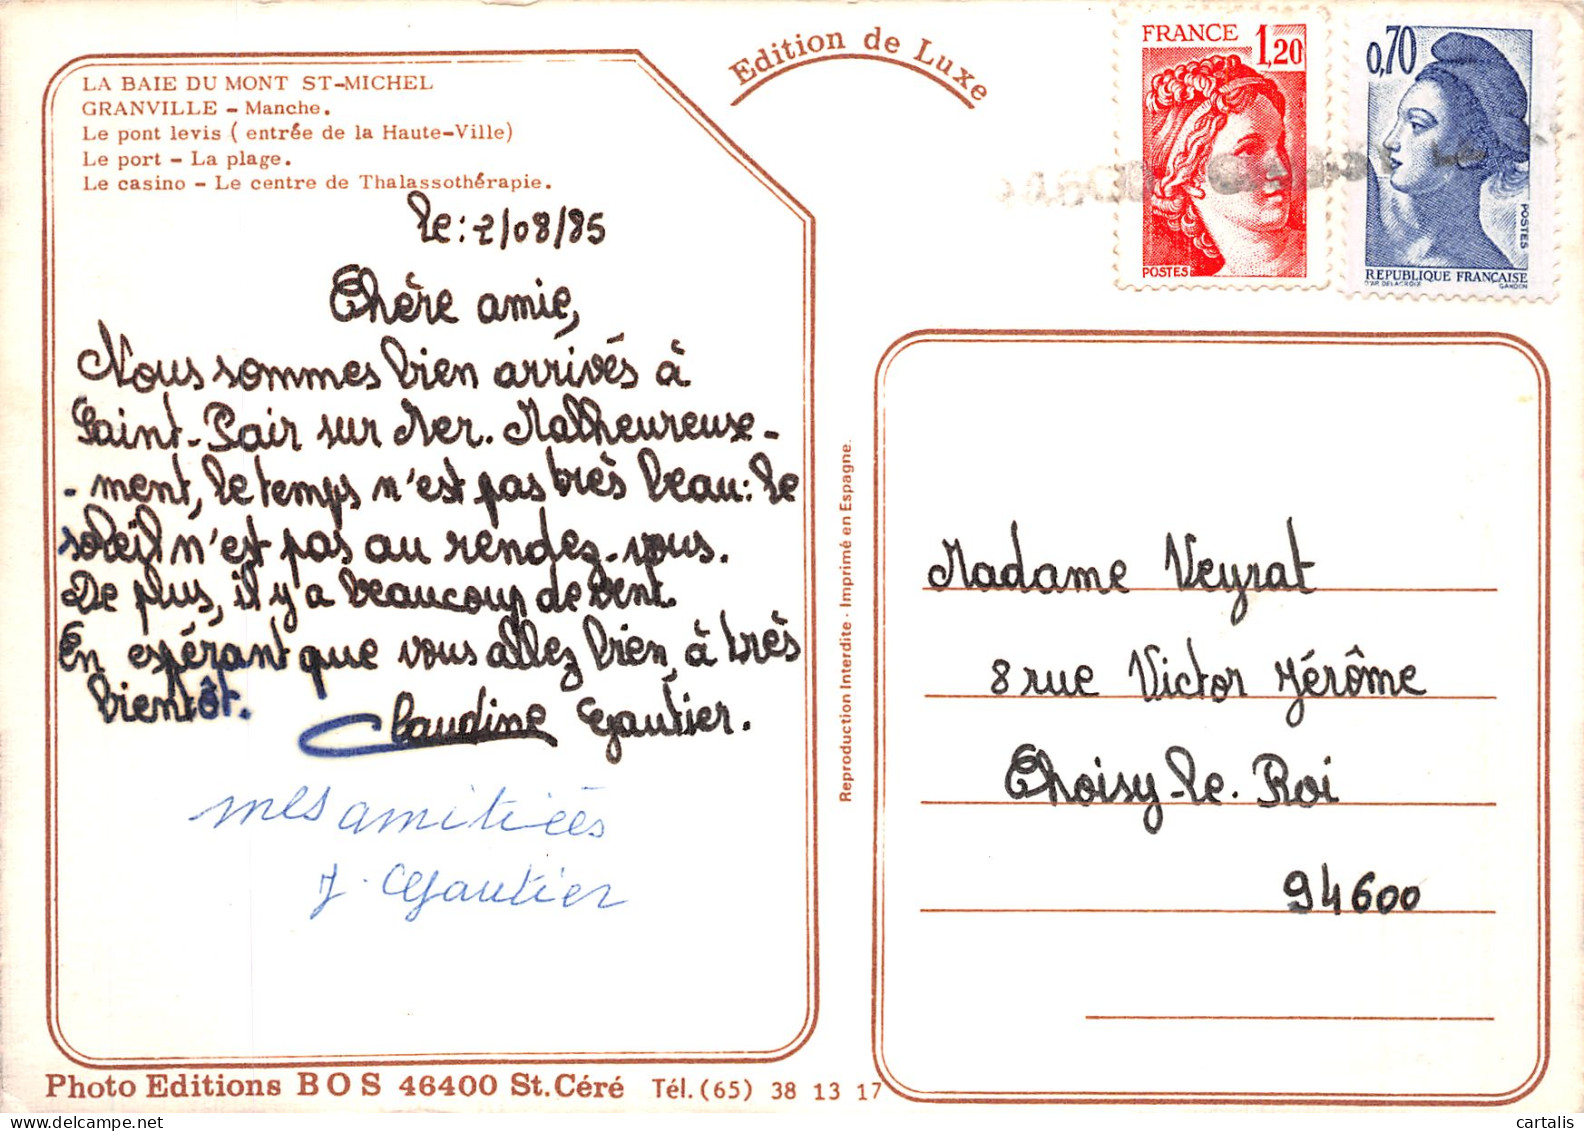 LA BAIE DU MONT ST-MICHEL
GRANVILLE - Manche.
Le pont levis ( entrée de la Haute-Ville)
Le port - La plage.
Le casino - Le centre de Thalassothérapie.
le: 2/08/85
Chère amie,
Nous sommes bien arrivés à
Saint-Pair sur Mer. Malheureuse-
-ment, le temps n'est pas très beau: le
soleil n'est pas au rendez-vous.
De plus, il y a beaucoup de vent.
En espérant que vous allez bien, à très
bientôt.
Claudine Gautier.
mes amitiées
J. Gautier
Photo Editions BOS 46400 St.Céré Tél.(65) 38 13 17
Edition de Luxe
Reproduction Interdite - Imprimé en Espagne.
FRANCE
1,20
POSTES
0,70
POSTES
REPUBLIQUE FRANÇAISE
D'AP. DELACROIX GANDON
Madame Veyrat
8 rue Victor Jérôme
Choisy-le-Roi
94600
cartalis